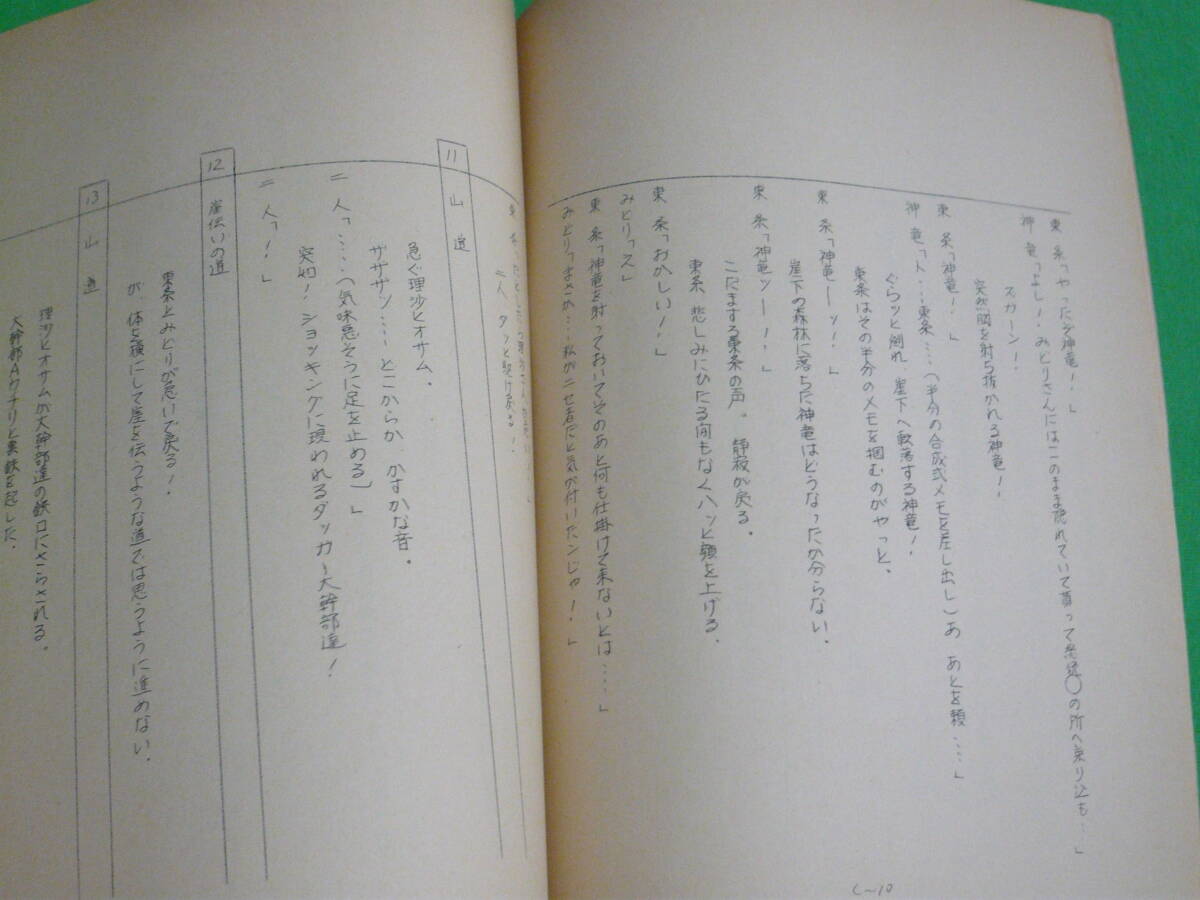 東条「やったぞ神竜!」
神竜「よし!みどりさんにはこのまま隠れていて貰って の所へ乗り込も…」
スガーン!
突然胸を射ち抜かれる神竜!
東条「神竜!」
神竜「ト…東条…(半分の合成式メモを差し出し)あ あとを頼…」
ぐらッと倒れ、崖下へ転落する神竜!
東条はその半分のメモを掴むのがやっと。
東条「神竜ーッ!」
崖下の森林に落ちた神竜はどうなったか分らない。
東条「神竜ッー!」
こだまする東条の声。静寂が戻る。
東条、悲しみにひたる間もなくハッと顔を上げる。
東条「おかしい!」
みどり「ス」
東条「神竜を射っておいてそのあと何も仕掛けて来ないとは…」
みどり「まさか…私がニセ者だと気が付いたンじゃ!」
二人、ダッと駆け戻る!
11 山道
急ぐ理沙とオサム。
ササササン…とどこからか、かすかな音。
二人「……(気味悪そうに足を止める)」
突如!ショッキングに現われるダッカー大幹部達!
二人「!」
12 崖伝いの道
東条とみどりが急いで戻る!
が、体を横にして崖を伝うような道では思うように進めない。
13 山道
理沙とオサムが大幹部達の銃口にさらされる。
大幹部Aクナリと撃鉄を起した。
C-10